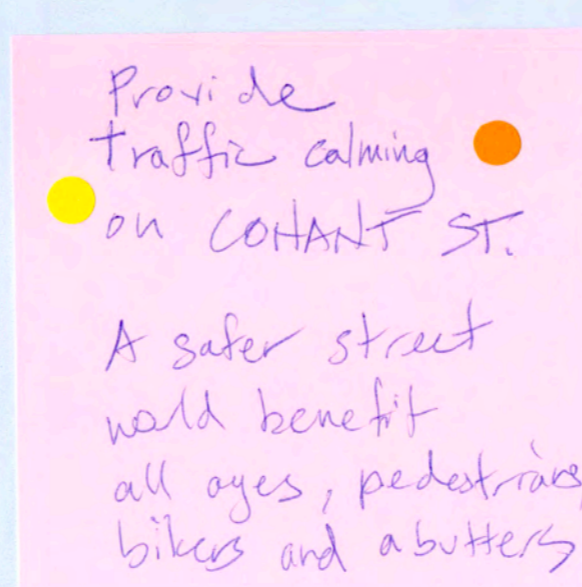 Provide
traffic calming
on CONANT ST.
A safer street
would benefit
all ages, pedestrians,
bikers and abutters